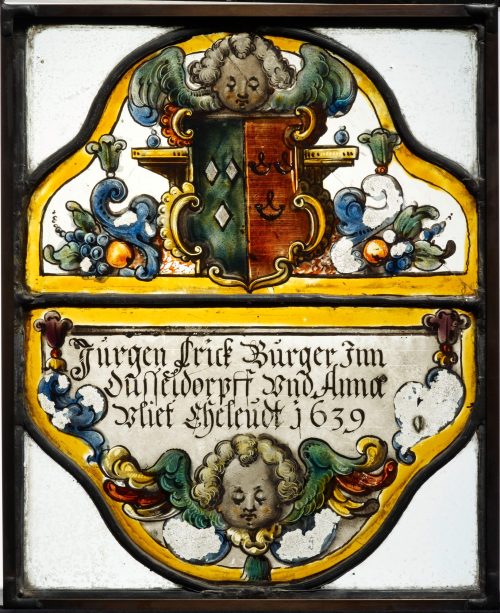 Jürgen Crick Burger Inn
Dusseldorpff Vnd Annæ
Vliet Eheleudt 1639